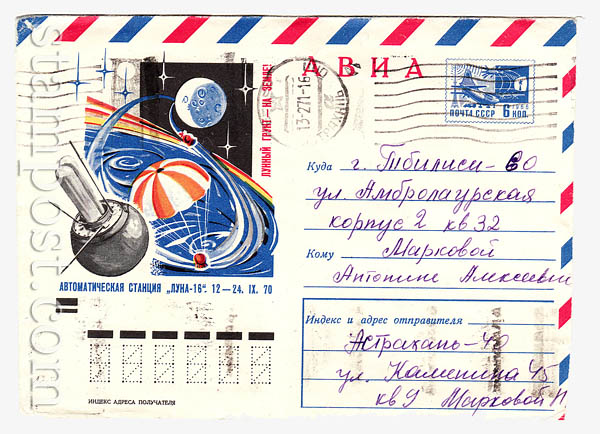 АВИА
ЛУННЫЙ ГРУНТ — НА ЗЕМЛЕ!
13-271-16
ПОЧТА СССР 6 КОП.
Куда г. Тбилиси-60
ул. Амбролаурская
корпус 2 кв 32
Кому Марковой
Антонине Алексеевн
АВТОМАТИЧЕСКАЯ СТАНЦИЯ „ЛУНА-16“. 12—24. IX. 70
Индекс и адрес отправителя
Астрахань-40
ул. Каменина 45
кв 9 Марковой
ИНДЕКС АДРЕСА ПОЛУЧАТЕЛЯ
stampost.com